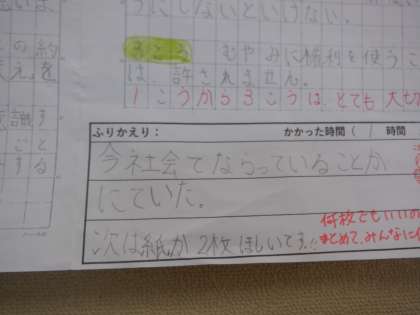 うにしないといけない。
むやみに権利を使うこ
は、許されません。
1こうから3こうは、とても大
の約
を
言哉す
こと
する
ふりかえり： かかった時間（ 時間
今社会でならっていることが
にていた。
次は紙が2枚ほしいです!!
何枚でもいいの
まとめて、みんなに